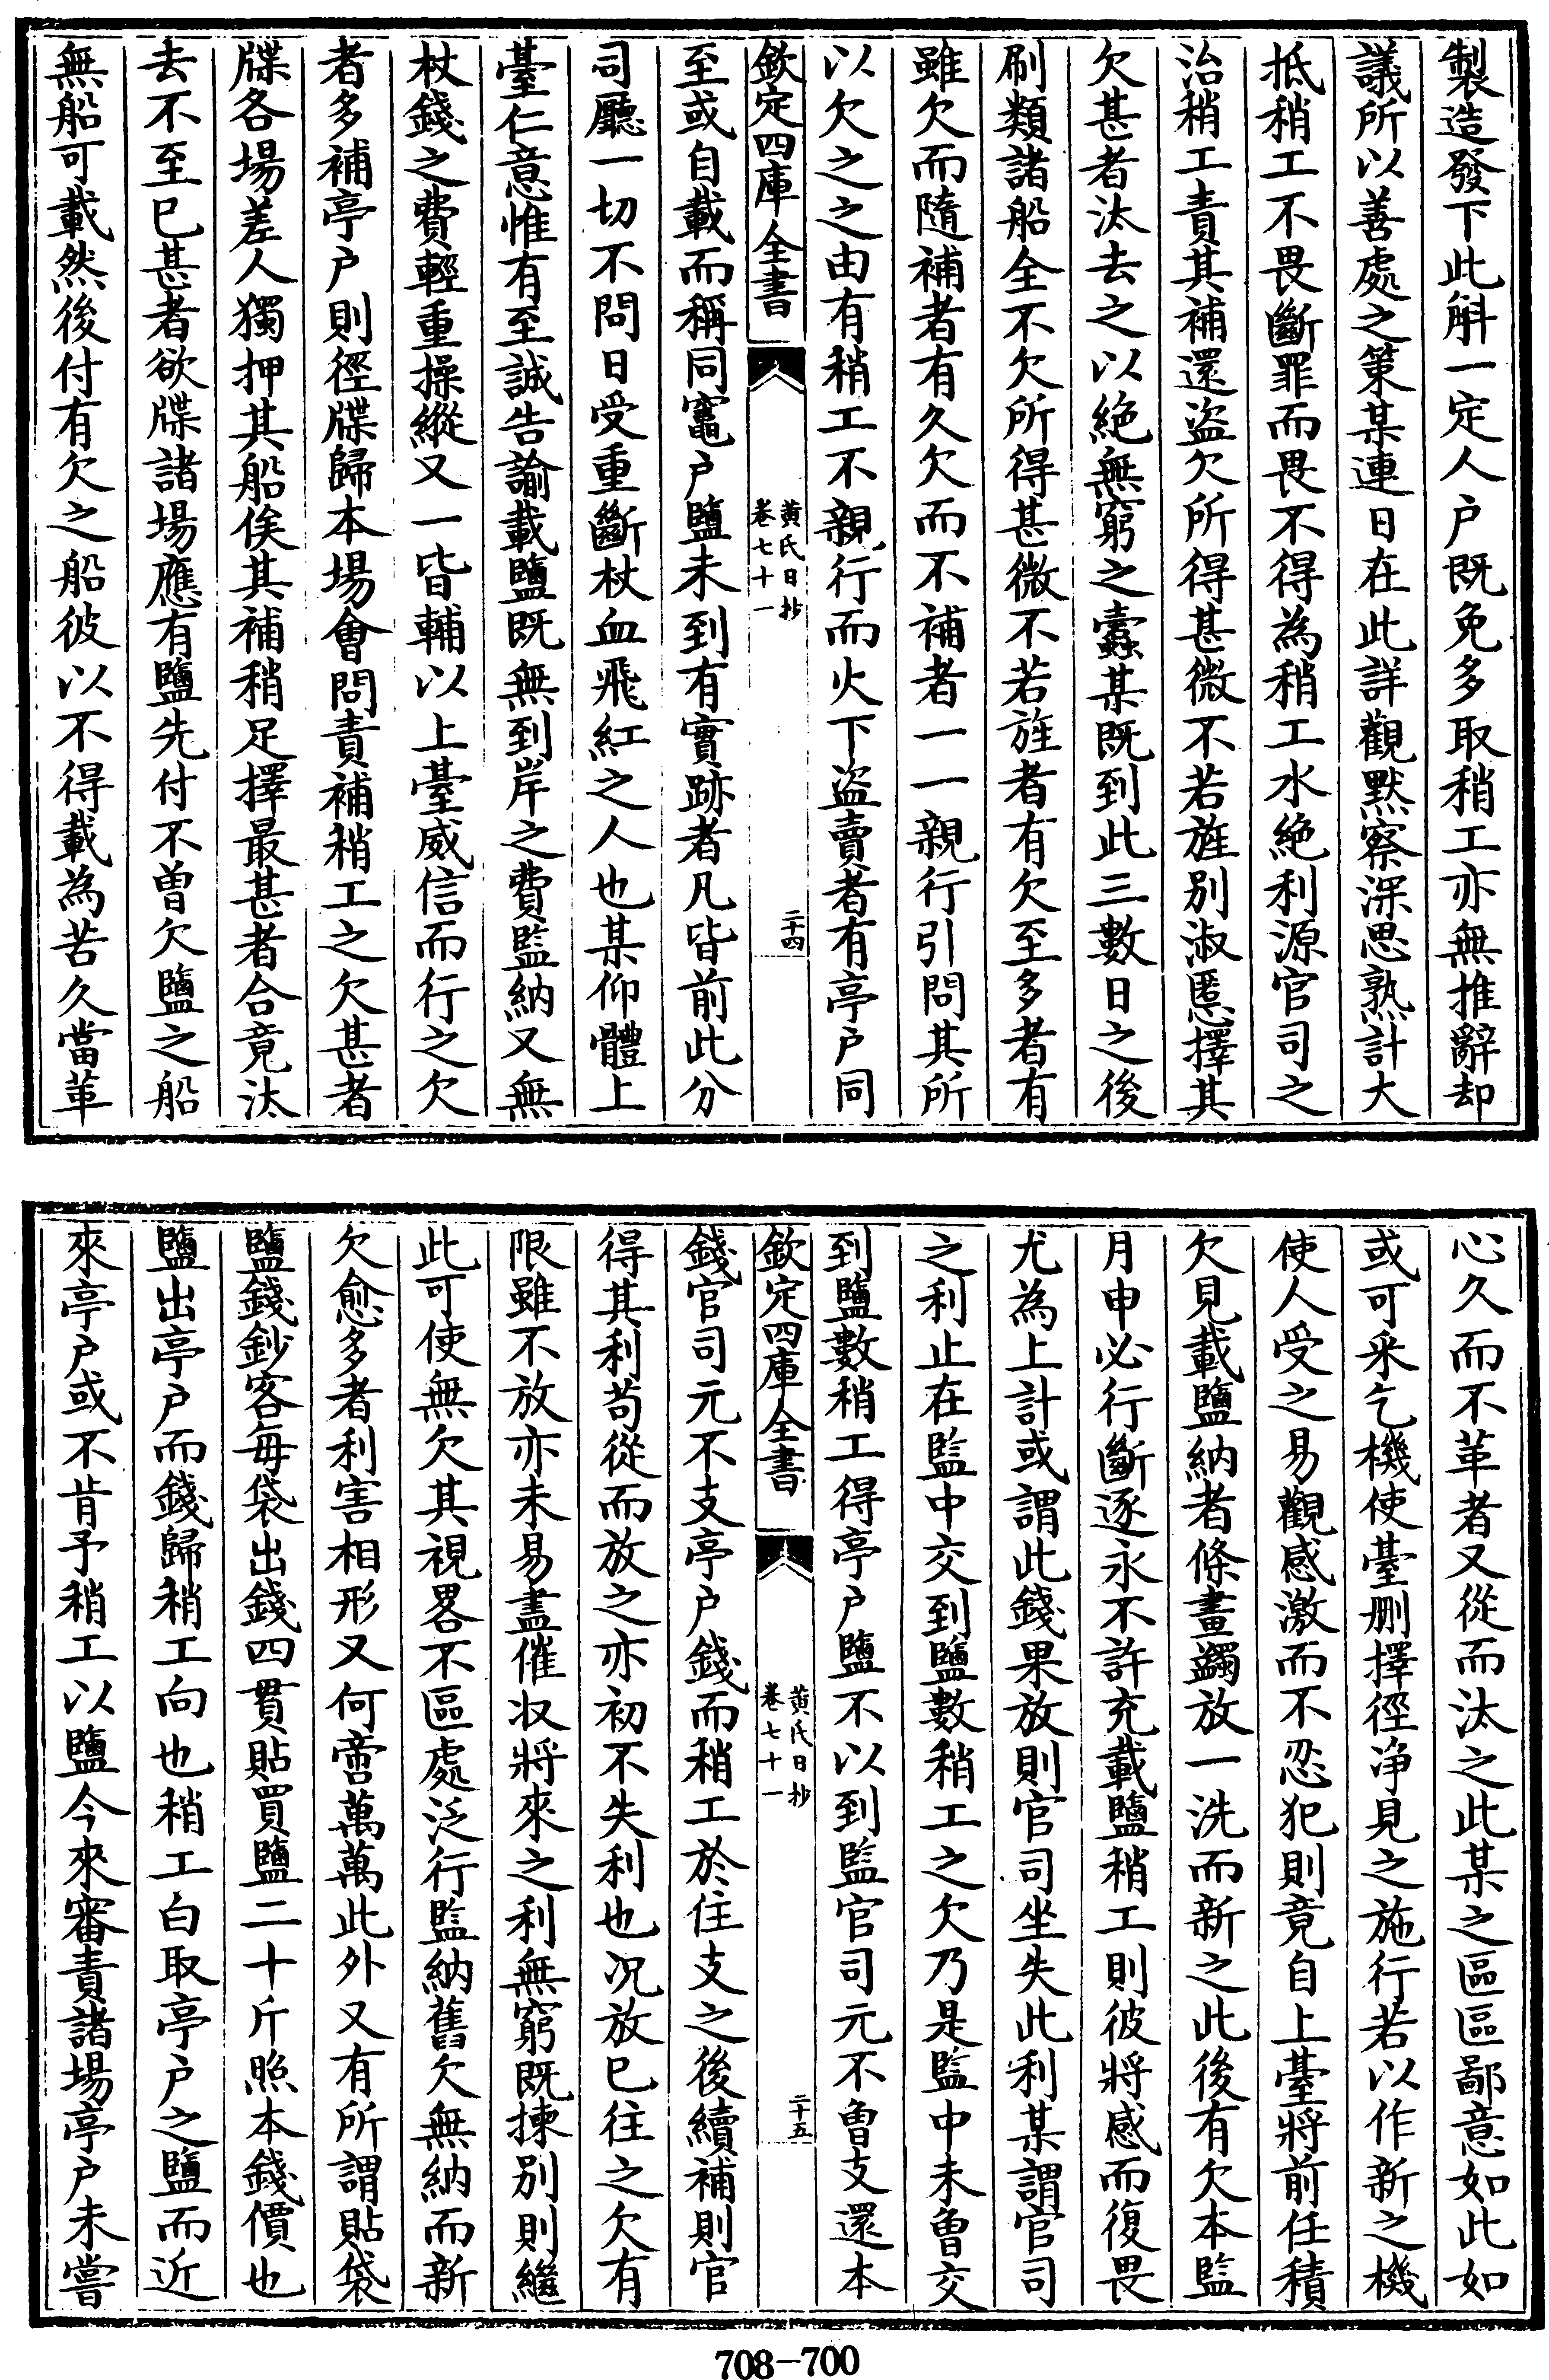 製造發下此斛一定人戶既免多取稍工亦無推辭却
議所以善處之策某連日在此詳觀默察深思熟計大
抵稍工不畏斷罪而畏不得為稍工水絶利源官司之
治稍工責其補還盜欠所得甚微不若旌别淑慝擇其
欠甚者汰去之以絶無窮之蠹某既到此三數日之後
刷類諸船全不欠所得甚微不若旌者有欠至多者有
雖欠而隨補者有久欠而不補者一一親行引問其所
以欠之之由有稍工不親行而火下盜賣者有亭戶同
欽定四庫全書
黄氏日抄
卷七十一
二十四
至或自載而稱同竈戶鹽未到有實跡者凡皆前此分
司廳一切不問日受重斷杖血飛紅之人也某仰體上
臺仁意惟有至誠告諭載鹽既無到岸之費監納又無
杖錢之費輕重操縱又一皆輔以上臺威信而行之欠
者多補亭戶則徑牒歸本場會問責補稍工之欠甚者
牒各場差人獨押其船俟其補稍足擇最甚者合竟汰
去不至已甚者欲牒諸場應有鹽先付不曽欠鹽之船
無船可載然後付有欠之船彼以不得載為苦久當革
心久而不革者又從而汰之此某之區區鄙意如此如
或可采乞機使臺删擇徑浄見之施行若以作新之機
使人受之易觀感激而不忍犯則竟自上臺將前任積
欠見載鹽納者條畫蠲放一洗而新之此後有欠本監
月申必行斷逐永不許充載鹽稍工則彼將感而復畏
尤為上計或謂此錢果放則官司坐失此利某謂官司
之利止在監中交到鹽數稍工之欠乃是監中未曽交
到鹽數稍工得亭戶鹽不以到監官司元不曽支還本
欽定四庫全書
黄氏日抄
卷七十一
二十五
錢官司元不支亭戶錢而稍工於住支之後續補則官
得其利苟從而放之亦初不失利也况放已往之欠有
限雖不放亦未易盡催收將來之利無窮既揀别則繼
此可使無欠其視畧不區處泛行監納舊欠無納而新
欠愈多者利害相形又何啻萬萬此外又有所謂貼袋
鹽錢鈔客每袋出錢四貫貼買鹽二十斤照本錢價也
鹽出亭戶而錢歸稍工向也稍工白取亭戶之鹽而近
來亭戶或不肯予稍工以鹽今來審責諸場亭戶未嘗
708—700